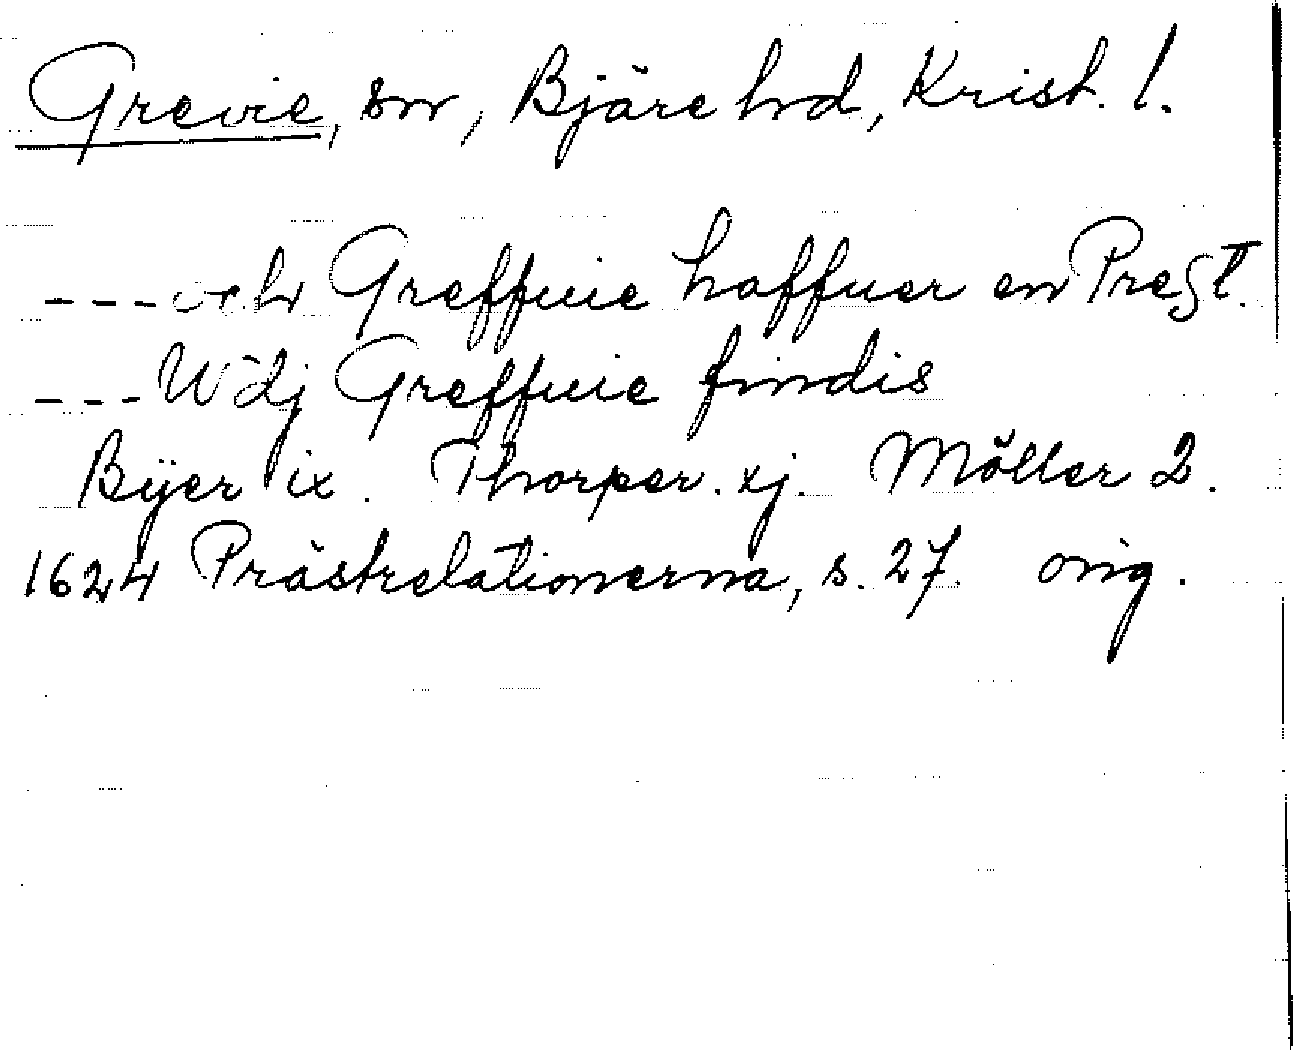 Grevie, sn, Bjäre hd, Krist. l.
---och Greffuie haffuer en Prest.
---Wdj Greffuie findis
Bÿer ix. Thorper. xj. Möller 2.
1624 Prästrelationerna, s. 27. orig.